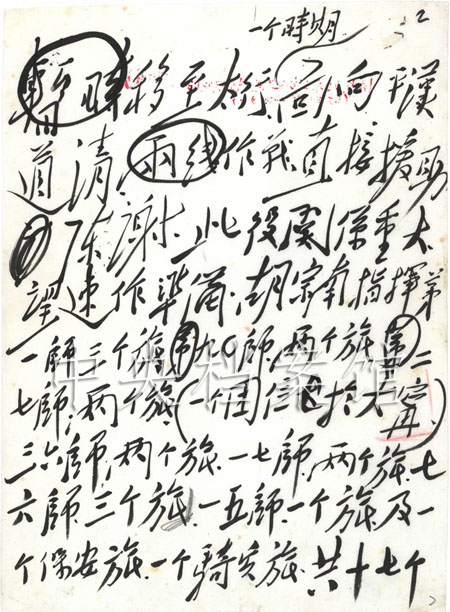 一个時期 2
暫時移至太行,向平漢
道清兩线作戰,直接援助
陈謝。此役関係重大
望速作準備。胡宗南指揮第
一師三个旅,第九〇師,两个旅,第二
七師,两个旅,(一个团 於大寧)
三六師,两个旅,一七師,两个旅,七
六師,三个旅,一五師一个旅及一
个保安旅,一个騎兵旅,共十七个
中央档案馆